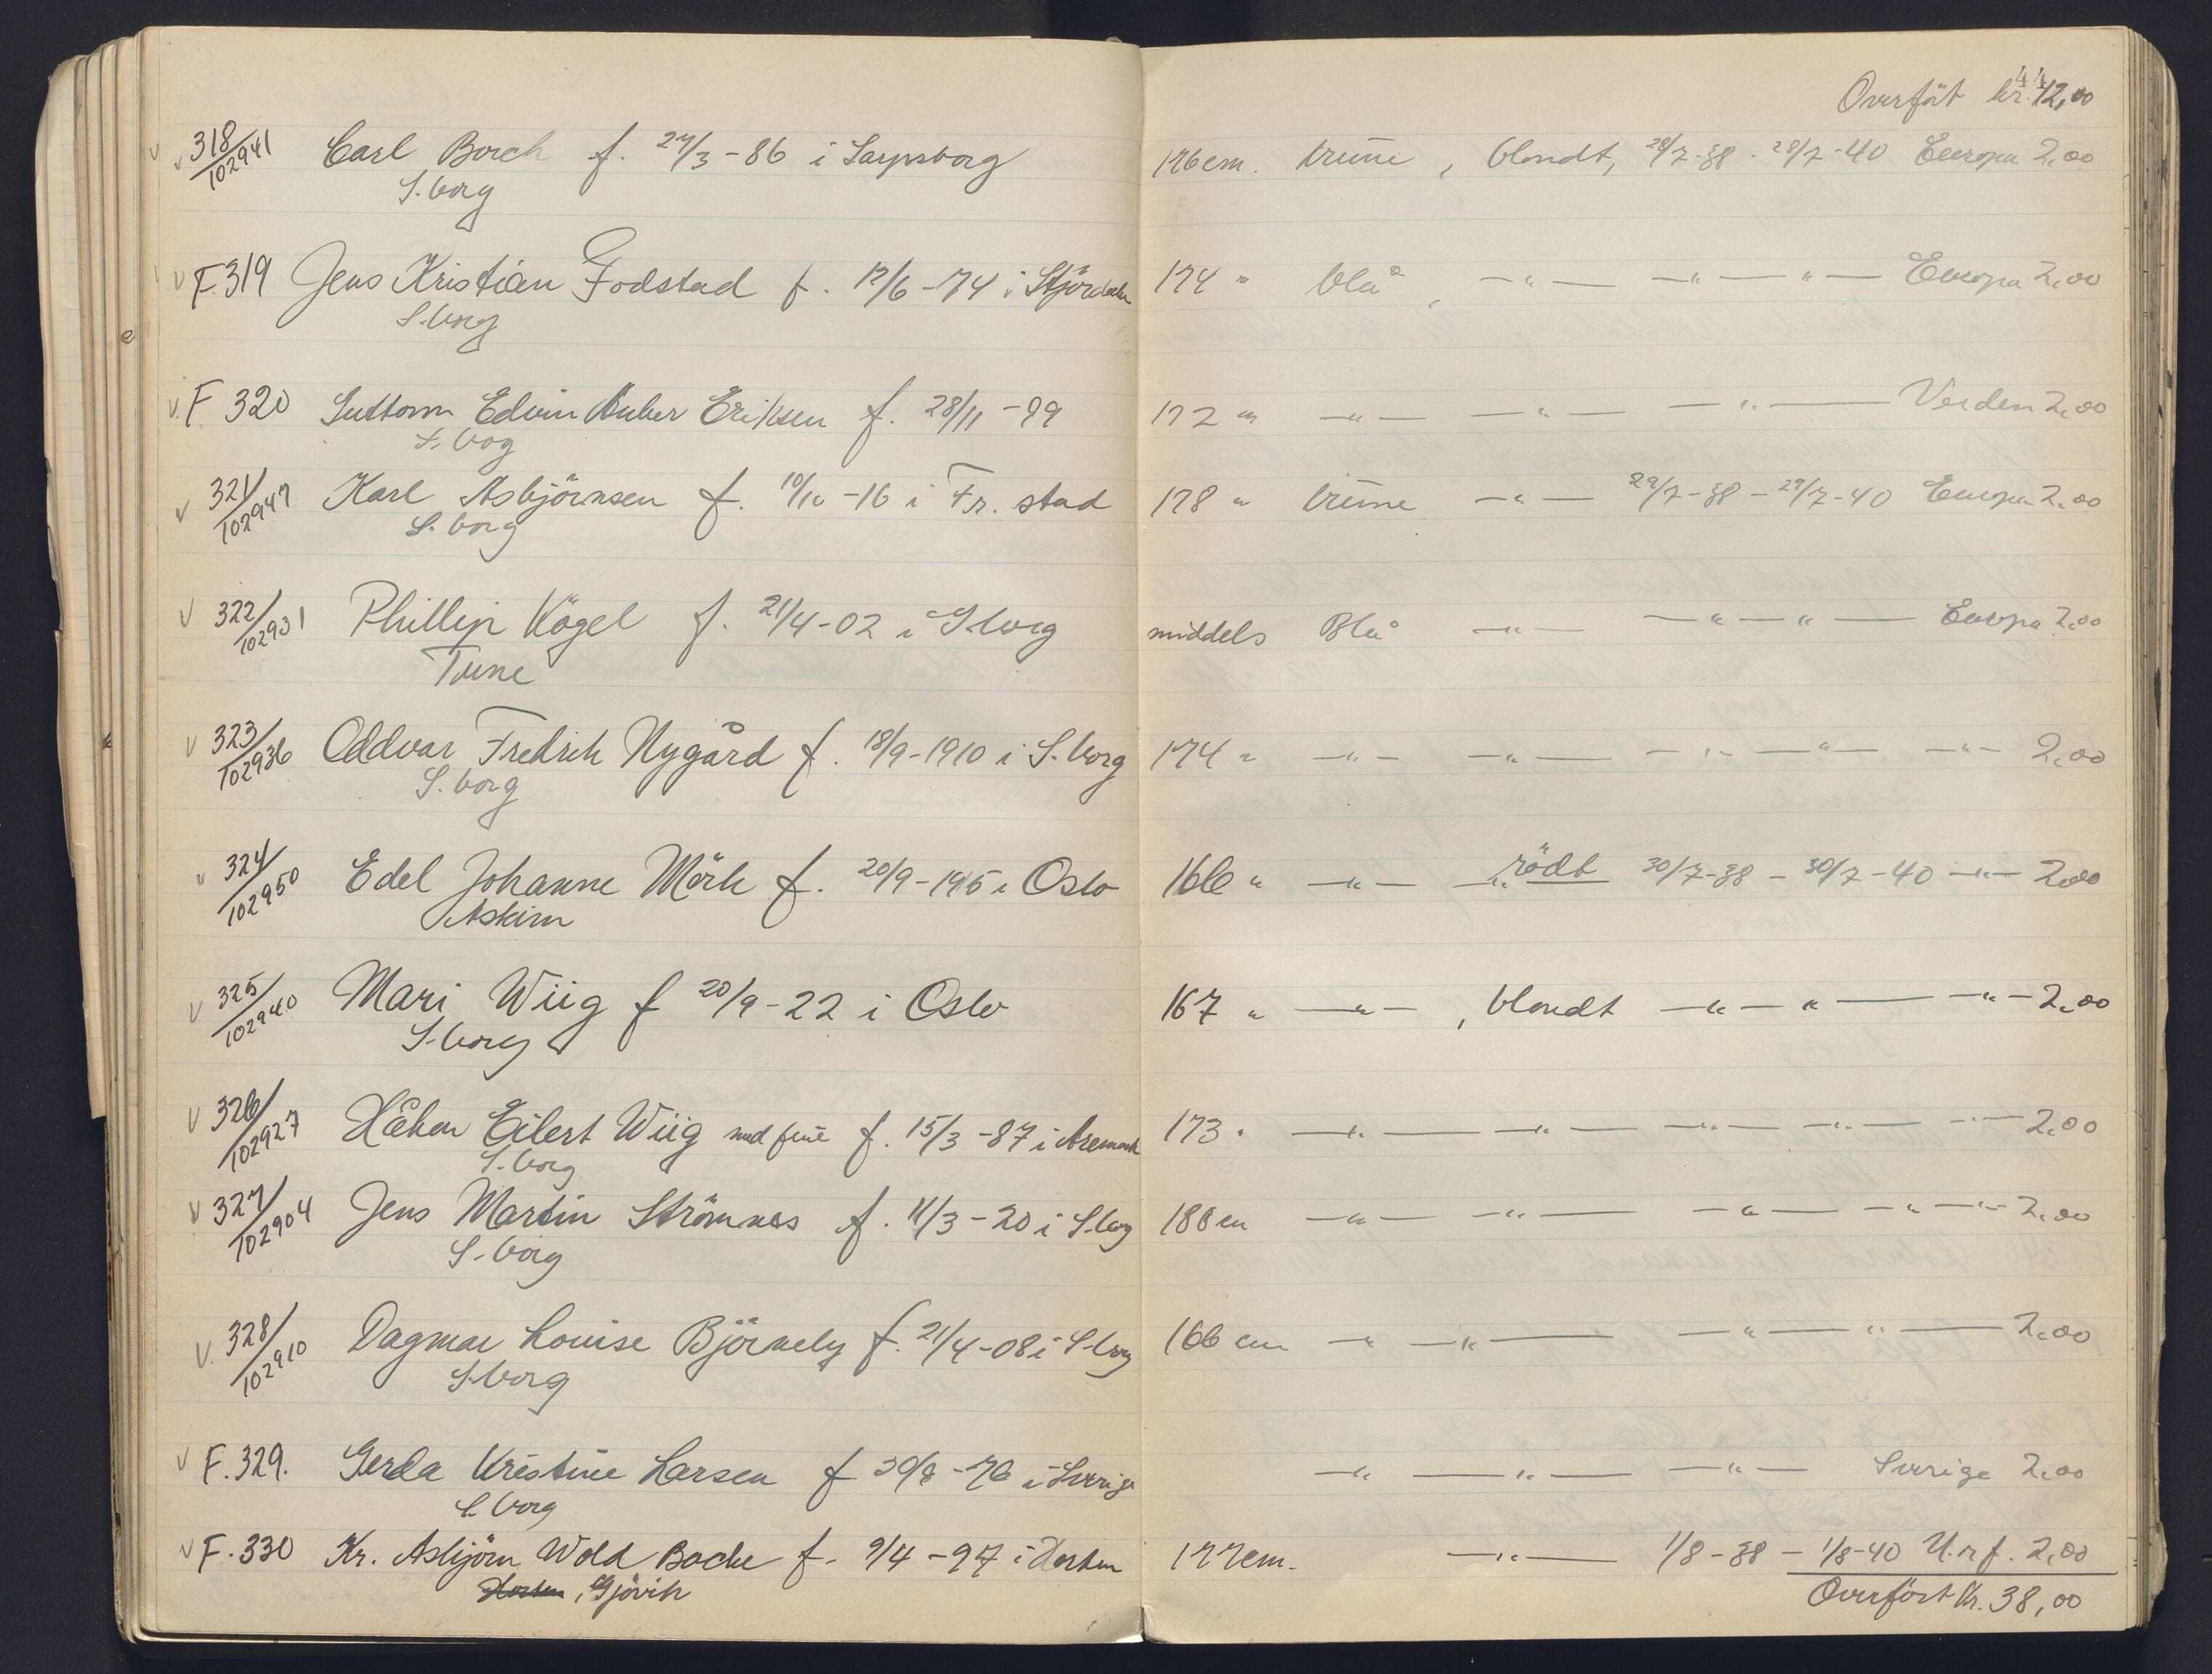 44
Overfört kr. 12,00
318/102941 Carl Borch f. 27/3-86 i Sarpsborg 176 cm. brune, blondt, 28/7-38 - 28/7-40 Europa 2,00
S.borg
F.319 Jens Kristian Fodstad f. 12/6-74 i Stjördalen 174 " blå, —"— —"— "— Europa 2,00
S.borg
F 320 Guttorm Edvin Huber Eriksen f. 28/11-99 172 " —"— —"— —"— Verden 2,00
S.borg
321/102947 Karl Asbjörnsen f. 10/10-16 i Fr.stad 178 " brune —"— 29/7-38 - 29/7-40 Europa 2,00
S.borg
322/102931 Phillip Kögel f. 21/4-02 i S.borg middels Blå —"— —"—"— Europa 2,00
Tune
323/102936 Oddvar Fredrik Nygård f. 18/9-1910 i S.borg 174 " —"— —"— —"—"— —"— 2,00
S.borg
324/102950 Edel Johanne Mörk f. 20/9-1915 i Oslo 166 " —"— rödt 30/7-38 - 30/7-40 —"— 2,00
Askim
325/102940 Mari Wiig f 20/9-22 i Oslo 167 " —"—, blondt —"—"— —"— 2,00
S.borg
326/102927 Håkon Eilert Wiig med frue f. 15/3-87 i Aremark 173 " —"— —"— —"— —"— —"— 2,00
S.borg
327/102904 Jens Martin Strömnes f. 11/3-20 i S.borg 188 cm —"— —"— —"— —"— —"— 2,00
S.borg
328/102910 Dagmar Louise Björneby f. 21/4-08 i S.borg 166 cm —"— —"— —"— "— 2,00
S.borg
F.329. Gerda Kristine Larsen f 30/8-76 i Sverige —"— —"— —"— Sverige 2,00
S.borg
F.330 Kr. Asbjörn Wold Bache f. 9/4-97 i Horten 177 cm. —"— 1/8-38 - 1/8-40 U.rf. 2,00
Horten, Gjövik
Overfört Kr. 38,00